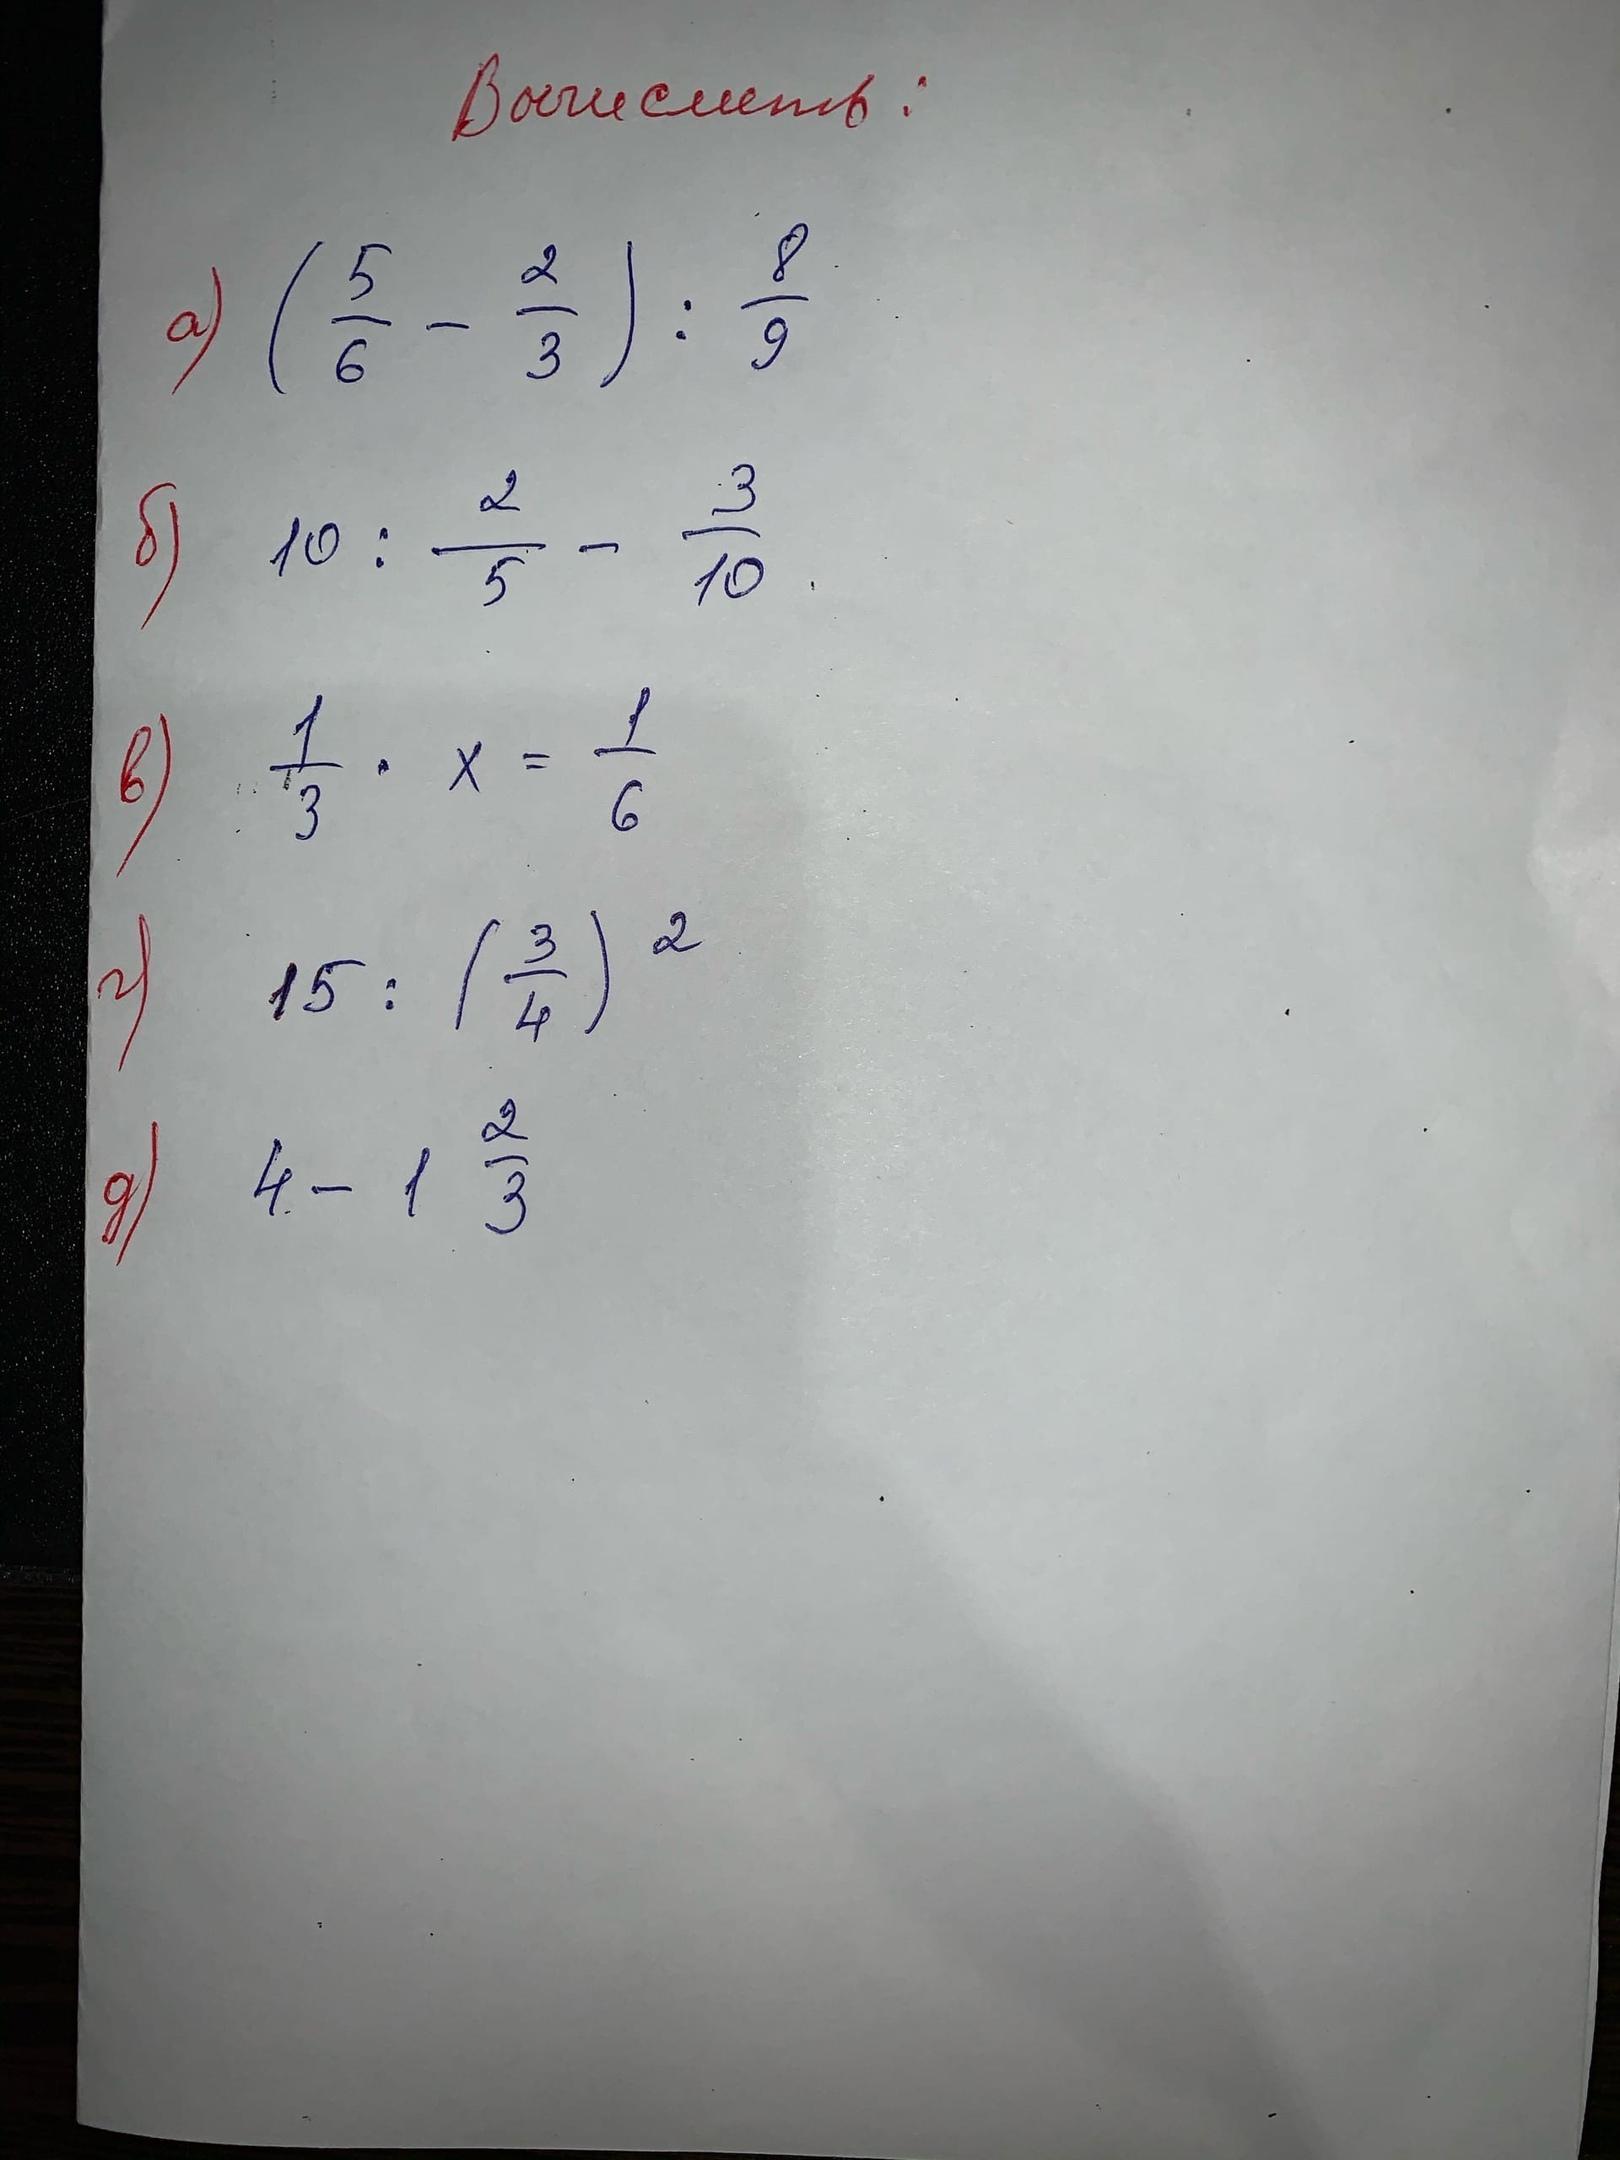 Вычислить:
а) (5/6 - 2/3) : 8/9
б) 10 : 2/5 - 3/10
в) 1/3 · x = 1/6
г) 15 : (3/4)²
д) 4 - 1 2/3